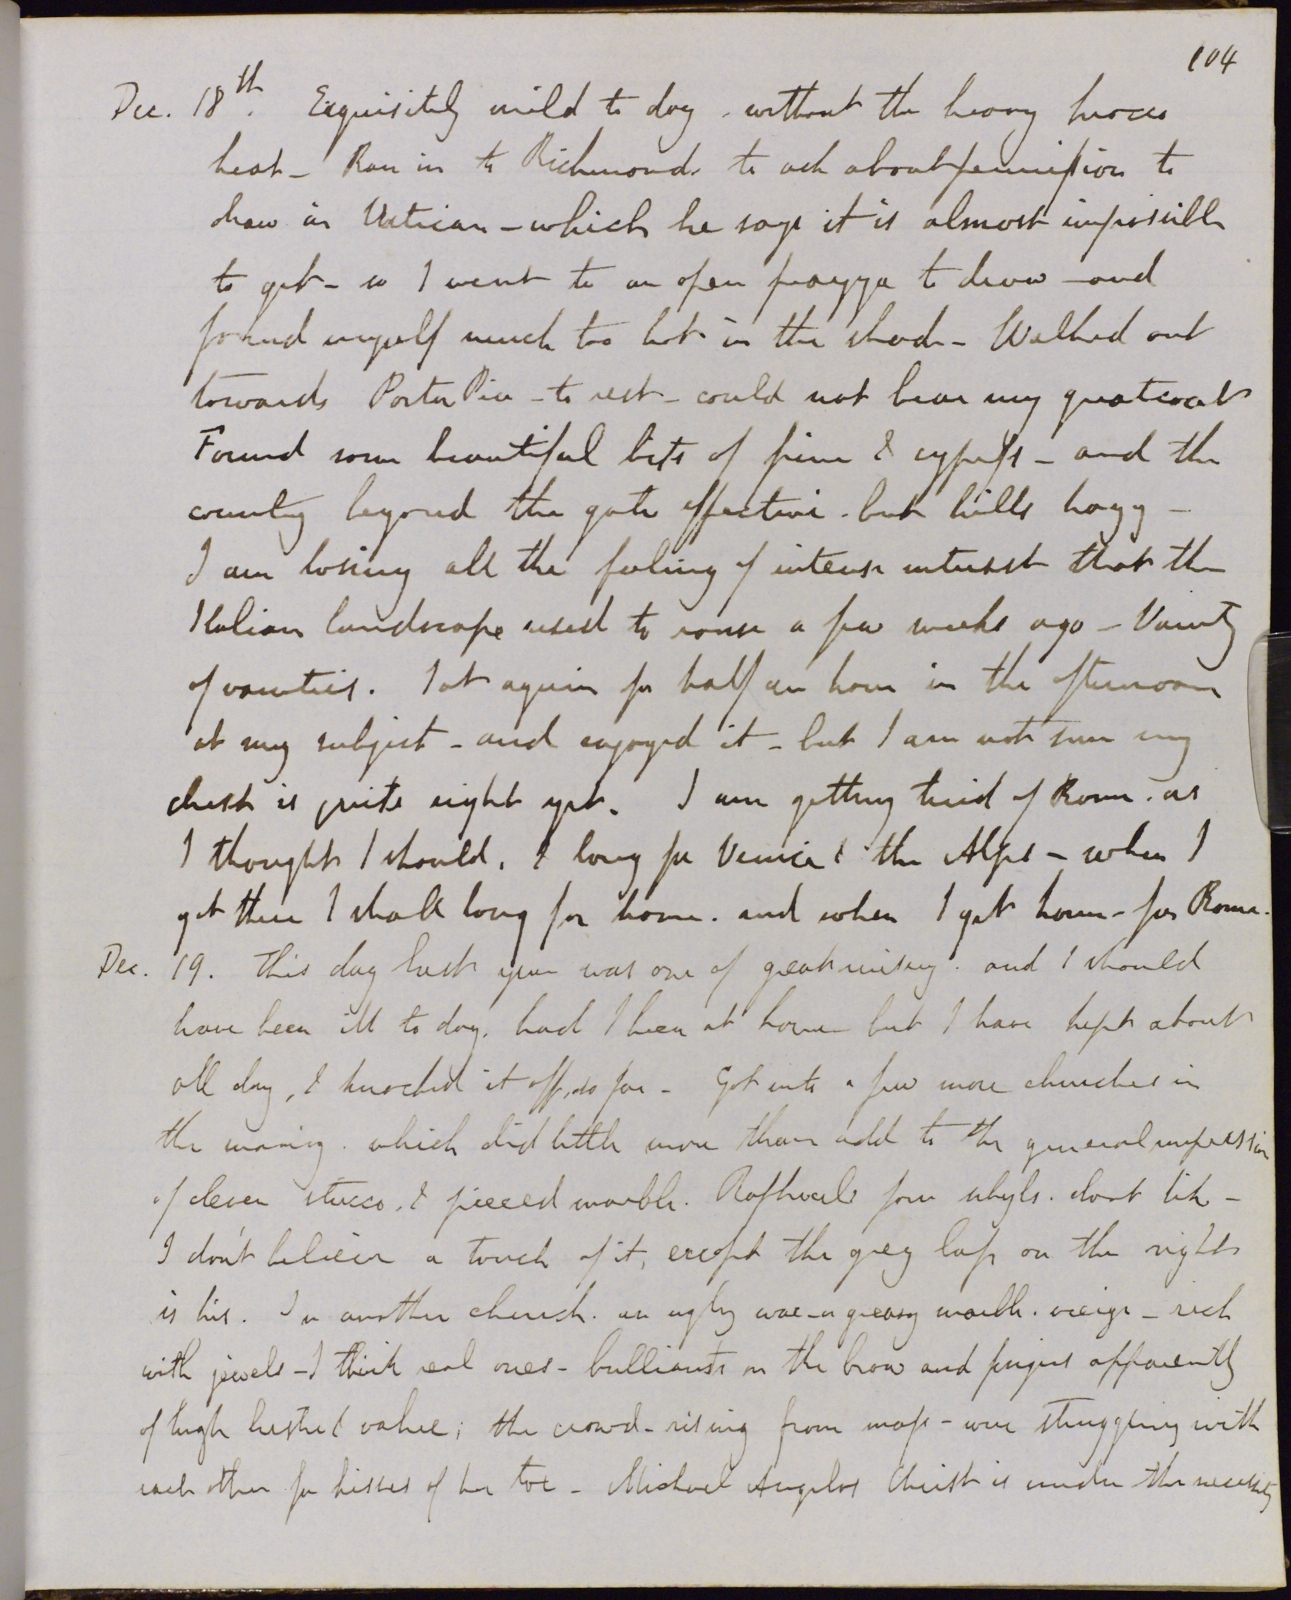 104
Dec. 18th. Exquisitely mild to day, without the heavy sirocco
heat - Ran in to Richmonds to ask about permission to
draw in Vatican - which he says it is almost impossible
to get - so I went to an open piazza to draw - and
found myself much too hot in the shade - Walked out
towards Porta Pia - to rest - could not bear my greatcoat
Found some beautiful bits of pine & cypress - and the
country beyond the gate effective - but hills hazy -
I am losing all the feeling of intense interest that the
Italian landscape used to rouse a few weeks ago - Vanity
of vanities. Sat again for half an hour in the afternoon
at my subject - and enjoyed it - but I am not sure my
chest is quite right yet. I am getting tired of Rome. as
I thought I should. & long for Venice & the Alps - when I
get there I shall long for home. and when I get home - for Rome.
Dec. 19. This day last year was one of great misery. and I should
have been ill to day, had I been at home but I have kept about
all day, & knocked it off, so far - Got into a few more churches in
the morning. which did little more than add to the general impression
of clever stucco, & pieced marble. Raphaels four sibyls. dont like -
I don't believe a touch of it, except the grey lap on the right
is his. In another church. an ugly wae-a greasy marble. vierge - rich
with jewels - I think real ones - brilliants on the brow and fingers apparently
of high lustre & value; the crowd - rising from mass - were struggling with
each other for kisses of her toe - Michael Angelos Christ is under the necessity